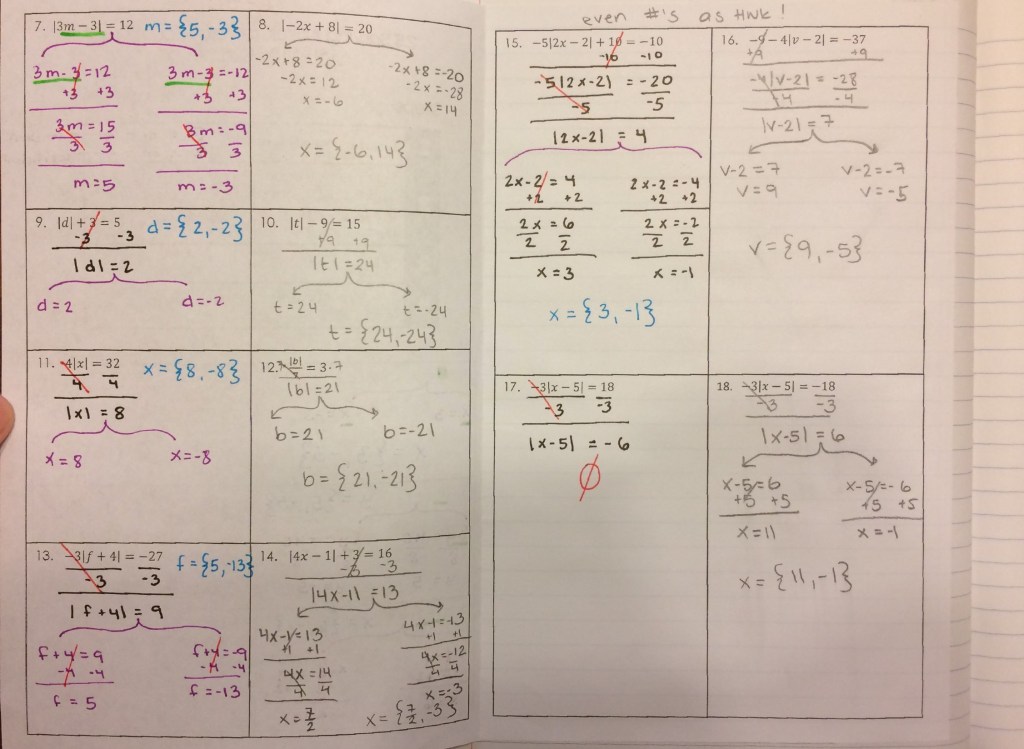 even #'s as HWK!
7. |3m − 3| = 12 m = {5, -3}
3m-3=12 3m-3=-12
+3 +3 +3 +3
3m = 15 3m = -9
3 3 3 3
m=5 m=-3
8. |−2x + 8| = 20
-2x+8=20 -2x+8=-20
-2x=12 -2x=-28
x=-6 x=14
x = {-6, 14}
9. |d| + 3 = 5 d = {2, -2}
-3 -3
|d| = 2
d=2 d=-2
10. |t| − 9 = 15
+9 +9
|t| = 24
t=24 t=-24
t = {24, -24}
11. 4|x| = 32 x = {8, -8}
4 4
|x| = 8
x=8 x=-8
12. 7·|b| = 3·7
7
|b| = 21
b=21 b=-21
b = {21, -21}
13. −3|f + 4| = −27 f = {5, -13}
-3 -3
|f+4| = 9
f+4=9 f+4=-9
-4 -4 -4 -4
f = 5 f=-13
14. |4x − 1| + 3 = 16
-3 -3
|4x-1| = 13
4x-1=13 4x-1=-13
+1 +1 +1 +1
4x = 14 4x = -12
4 4 4 4
x = 7/2 x=-3
x = {7/2, -3}
15. −5|2x − 2| + 10 = −10
-10 -10
-5|2x-2| = -20
-5 -5
|2x-2| = 4
2x-2 = 4 2x-2 = -4
+2 +2 +2 +2
2x = 6 2x = -2
2 2 2 2
x = 3 x = -1
x = {3, -1}
16. −9 − 4|v − 2| = −37
+9 +9
-4|v-2| = -28
-4 -4
|v-2| = 7
v-2=7 v-2=-7
v=9 v=-5
v = {9, -5}
17. −3|x − 5| = 18
-3 -3
|x-5| = -6
∅
18. −3|x − 5| = −18
-3 -3
|x-5| = 6
x-5=6 x-5=-6
+5 +5 +5 +5
x=11 x=-1
x = {11, -1}